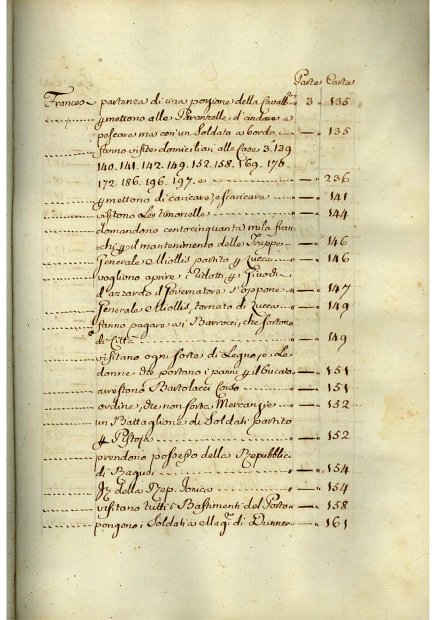 Parte Carte
Francesi partenza di una porzione della Cavall.a " 3 " 135
permettono alle Paranzelle d'andare a
pescare ma con un Soldato a bordo — " 135
fanno visite domiciliari alle Case 3. 139
140. 141. 142. 149. 152. 158. 169. 176
172. 186. 196. 197. e — " 236
permettono di caricare, e scaricare " — " 141
visitono Le timonelle " — " 144
domandono centocinquanta mila fran-
chi per il mantenimento delle Truppe — " 146
Generale Miollis partito per Lucca " — " 146
vogliono aprire i Ridotti per Giuochi
d'azzardo il Governatore s'oppone " — " 147
Generale Miollis, tornato di Lucca " — " 149
fanno pagare ai Barrocci, che sortono
di Città " — " 149
visitano ogni sorta di Legno, e Le
donne che portano i panni per il bucato " — " 151
arrestono Bartolacci Corso " — " 151
ordine, che non sorta, Mercanzie " — " 152
un Battaglione di Soldati partito
per Pistoja " — " 152
prendono possesso della Repubblica
di Ragusi " — " 154
della Rep. Jonica " — " 154
visitano tutti i Bastimenti del Porto " — " 158
pongono i Soldati a " — " 161